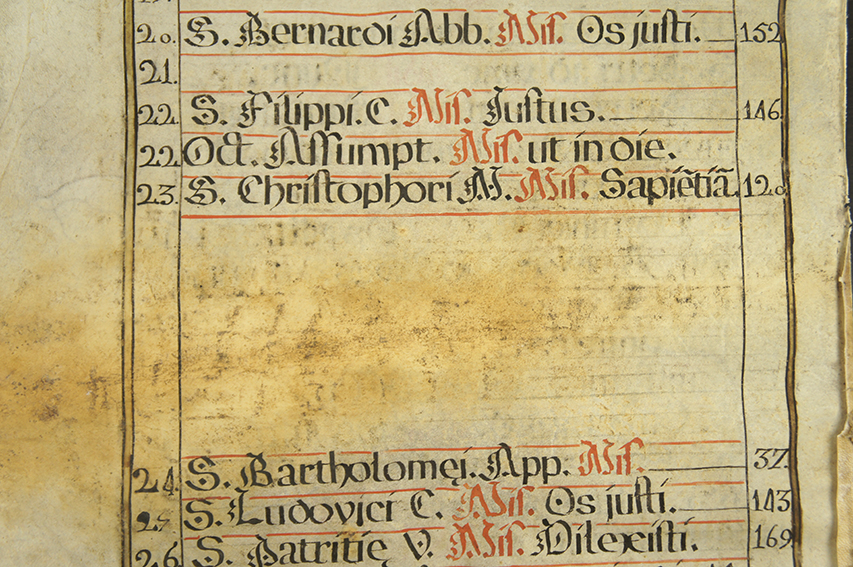 20. S. Bernardi Abb. Mis. Os justi. 152
21.
22. S. Filippi. C. Mis. Justus. 146.
22. Oct. Assumpt. Mis. ut in die.
23. S. Christophori M. Mis. Sapiẽtiã. 120
24. S. Bartholomęi. App. Mis. 37.
25 S. Ludovici C. Mis. Os justi. 143
26. S. Patritię V. Mis. Dilexisti. 169.